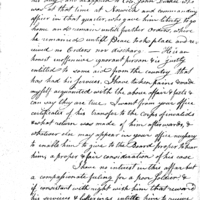 was at that time at Newwich and
office in that quarter, who gave him liberty to go
home and remain until further orders, where
he remained until Peace took place and re
ceived no orders nor discharge — He is an
honest inoffensive ignorant person & is justly
entitled to some aid from the country that
has had his services. I have taken pains to make
myself acquainted with the above affair & facts &
can say they are true. I want from your office
certificate of his transfer to the Corps of invalids
& what return was made of him afterwards, &
whatever else may appear in your office necessary
to enable him to give to the Board proper
him, a proper & fair consideration of his case
I have no interest in this affair but
a compassionate feeling for a poor soldier &
if consistent with right with him that reward
his services & sufferings entitle him to